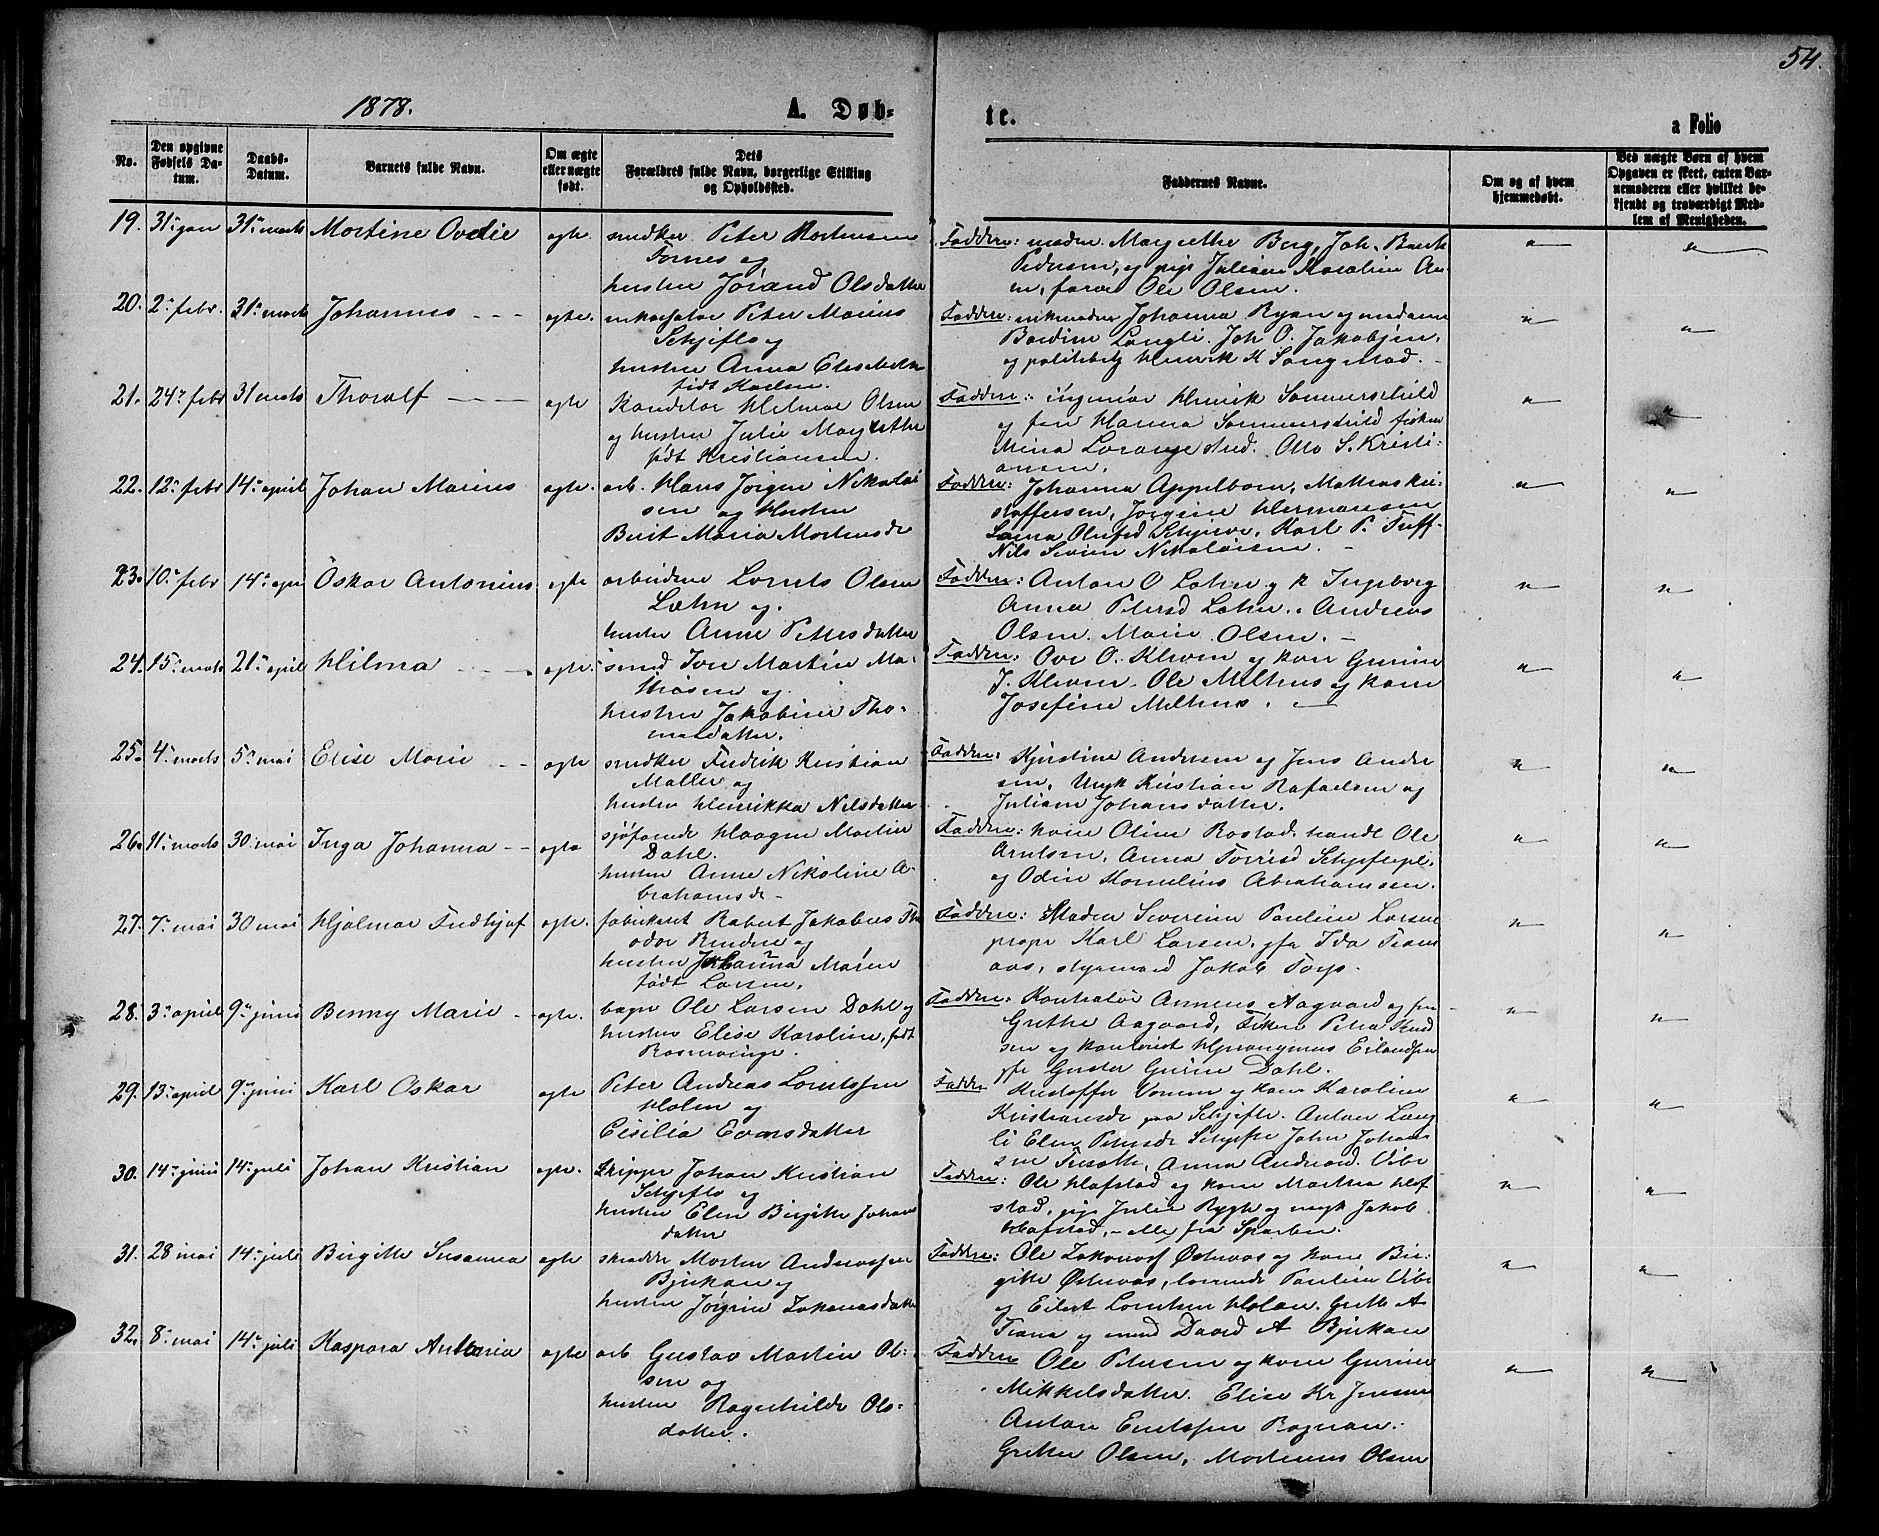 54.
1878.
A. Døb-
te.
a Folio
No.
Den opgivne
Fødsels Da-
tum.
Daabs-
Datum.
Barnets fulde Navn.
Om ægte
eller uægte
født.
Dets
Forældres fulde Navn, borgerlige Stilling
og Opholdssted.
Faddernes Navne.
Om og af hvem
hjemmedøbt.
Ved uægte Børn af hvem
Opgaven er skeet, enten Bar-
nemoderen eller hvilket be-
kjendt og troværdigt Med-
lem af Menigheden.
19. 31- jan 31- marts Martine ægte. snedker Peter Mortensen
Fornes og
hustru Jørand Olsdatter
Faddere: Margrethe Berg, Joh.
Pedersen, og pige Juliane Karoline
Ole Olsen.
20. 2- febr. 31- marts Johannes ægte. Peter Marius
Schjeflo og
hustru Anna Elisabeth
født Karlsen.
Faddere: Johanna Ryan og madame
Langli. Joh O. Jakobsen,
og politibetj Henrik K
21. 24- febr 31 marts Thoralf ægte Konditor Hilmar Olsen
og hustru Julie Margrethe
født Kristiansen.
Faddere: ingeniør Henrik Sommerschild
og Hanna Sommerschild frøken
Mina Lorange stud. Otto S. Kristi-
ansen.
22. 12- febr 14- april Johan Marius ægte. arb. Hans Jørgen Nikolai
sen og Hustru
Berit Maria Mortensdr
Faddere: Johanna Appelbom, Mathias Kri-
stoffersen, Jørgine Hermansen
Olufsd Karl P. Tuff-
Nils Nikolaisen.
23. 10- febr 14- apr Oskar Antonius ægte arbeider Lorents Olsen
Læhn og
hustru Anne Pettersdatter
Faddere: Anton O Læhn og k Ingeborg
Anna Petersd Læhn, Andreas
Olsen. Marie Olsen.
24. 15- marts 21- april Hilma ægte. smed Iver Martin Ma-
thisen og
hustru Jakobine Tho-
masdatter.
Faddere: Ove O. Kleven og kone Gurine
J. Kleven. Ole Melhus og kone
Josefine Melhus.
25. 4- marts 5- mai Elise Marie ægte snedker Fredrik Kristian
Møller og
hustru Henrikka Nilsdatter
Faddere: Kjerstine Andersen og Jens Ander
sen, Ungk Kristian Rafaelsen og
Juliane Johansdatter.
26. 11- marts 30 mai Inga Johanna ægte sjøfarende Haagen Martin
Dahl.
hustru Anne Nikoline A-
brahamsdr
Faddere: kone Oline Rostad, handl Ole
Arntsen, Anna Torrisd
og Odin Kornelius Abrahamsen.
27. 7- mai 30 mai Hjalmar Fridthjof ægte. fabrikeier Robert Jakobus The
odor og
hustru Johanna Maren
født Larsen.
Faddere: Madam Severine Pauline Larsen
Karl Larsen, Ida
styrmand Jakob Torp.
28. 3- april 9- juni Benny Marie ægte. bager Ole Larsen Dahl og
hustru Elise Karoline, født
Faddere: Kontrolør Aagaard og fru
Grethe Aagaard, Frøken Petra Knud
sen og Hieronymus Eilandsen
Gurine Dahl.
29. 13- april 9- juni Karl Oskar ægte Peter Andreas Lorentssen
Holm og
Cecilia Evensdatter
Faddere Kristoffer og kone Karoline
Kristiansdr Anton Lang
li Elen Petersdr John Johan
sen Anna Vibe
30. 14- juni 14- juli Johan Kristian ægte. Skipper Johan Kristian
Schjeflo og
hustru Elen Birgitte Johans
datter
Faddere: Ole Hafstad og kone Marthea Haf
stad, pige Julie Rygh og ungk Jakob
Hafstad, – alle fra Sparbu.
31. 28 mai 14- juli Birgitte Susanna ægte skrædder Morten Andreassen
Bjerkan og
hustru Jørgine Zakariasdatter
Faddere: Ole Østeraas og kone Bir-
gitte Østeraas, Pauline Vibe
og Eilert Lorntsen Holan. Grethe A
og smed A Bjerkan
32. 8- mai 14- juli Kaspara Antonia ægte arb Gustav Martin Ol-
sen og
hustru Ragnhilde Ols-
datter.
Faddere Ole Petersen og kone Gurine
Mikkelsdatter. Elise Kr Jensen
Antone
Grethe Olsen, Martinus Olsen